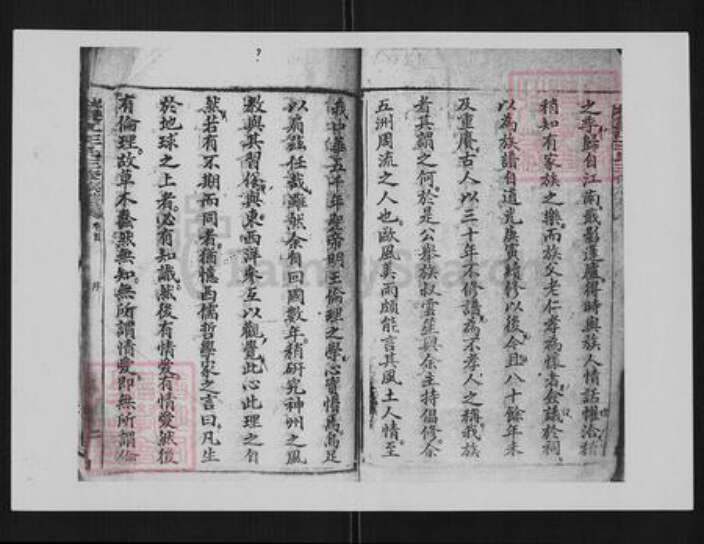 之季歸自江南戢影蓬廬得時與族人情話懽洽
稍知有家族之樂而族父老仁等為恆者僉議於祠
以為族譜自道光庚寅續修以後今且八十餘年未
及重賡古人以三十年不修譜為不孝人之稱我族
者其謂之何於是公舉族叔雲笙與余主持倡修余
五洲周流之人也歐風美雨頗能言其風土人情至
我中華五千年聖帝明王倫理之學心實懵焉烏足
以肩茲任哉雖然余自回國數年稍研究神州之風
教與其習俗與東西詳參互以觀覺此心此理之自
然若有不期而同者猶憶西儒哲學家之言曰凡生
於地球之上者必有知識然後有情愛有情愛然後
有倫理故草木蠢然無知無所謂情愛即無所謂倫
序